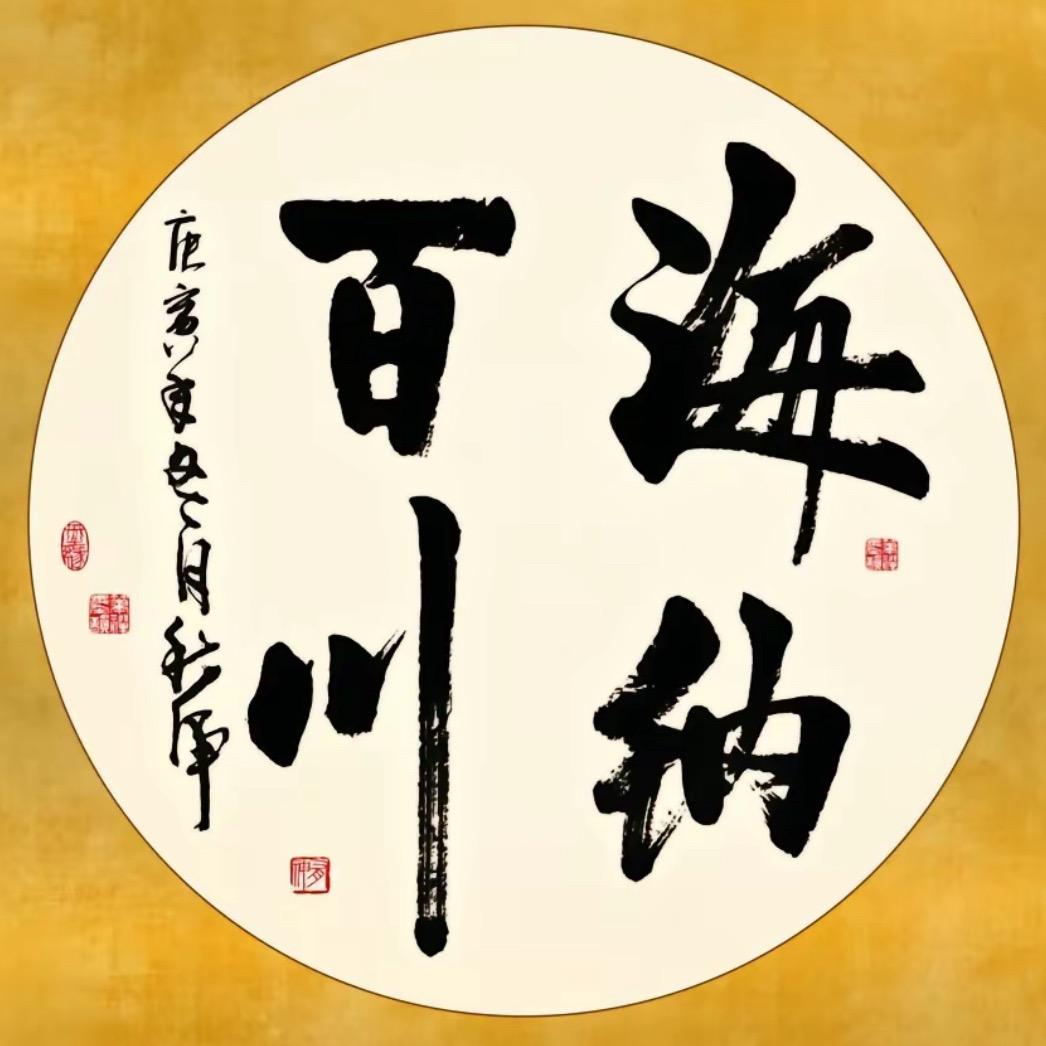 海纳
百川
庚寅年五月秋军